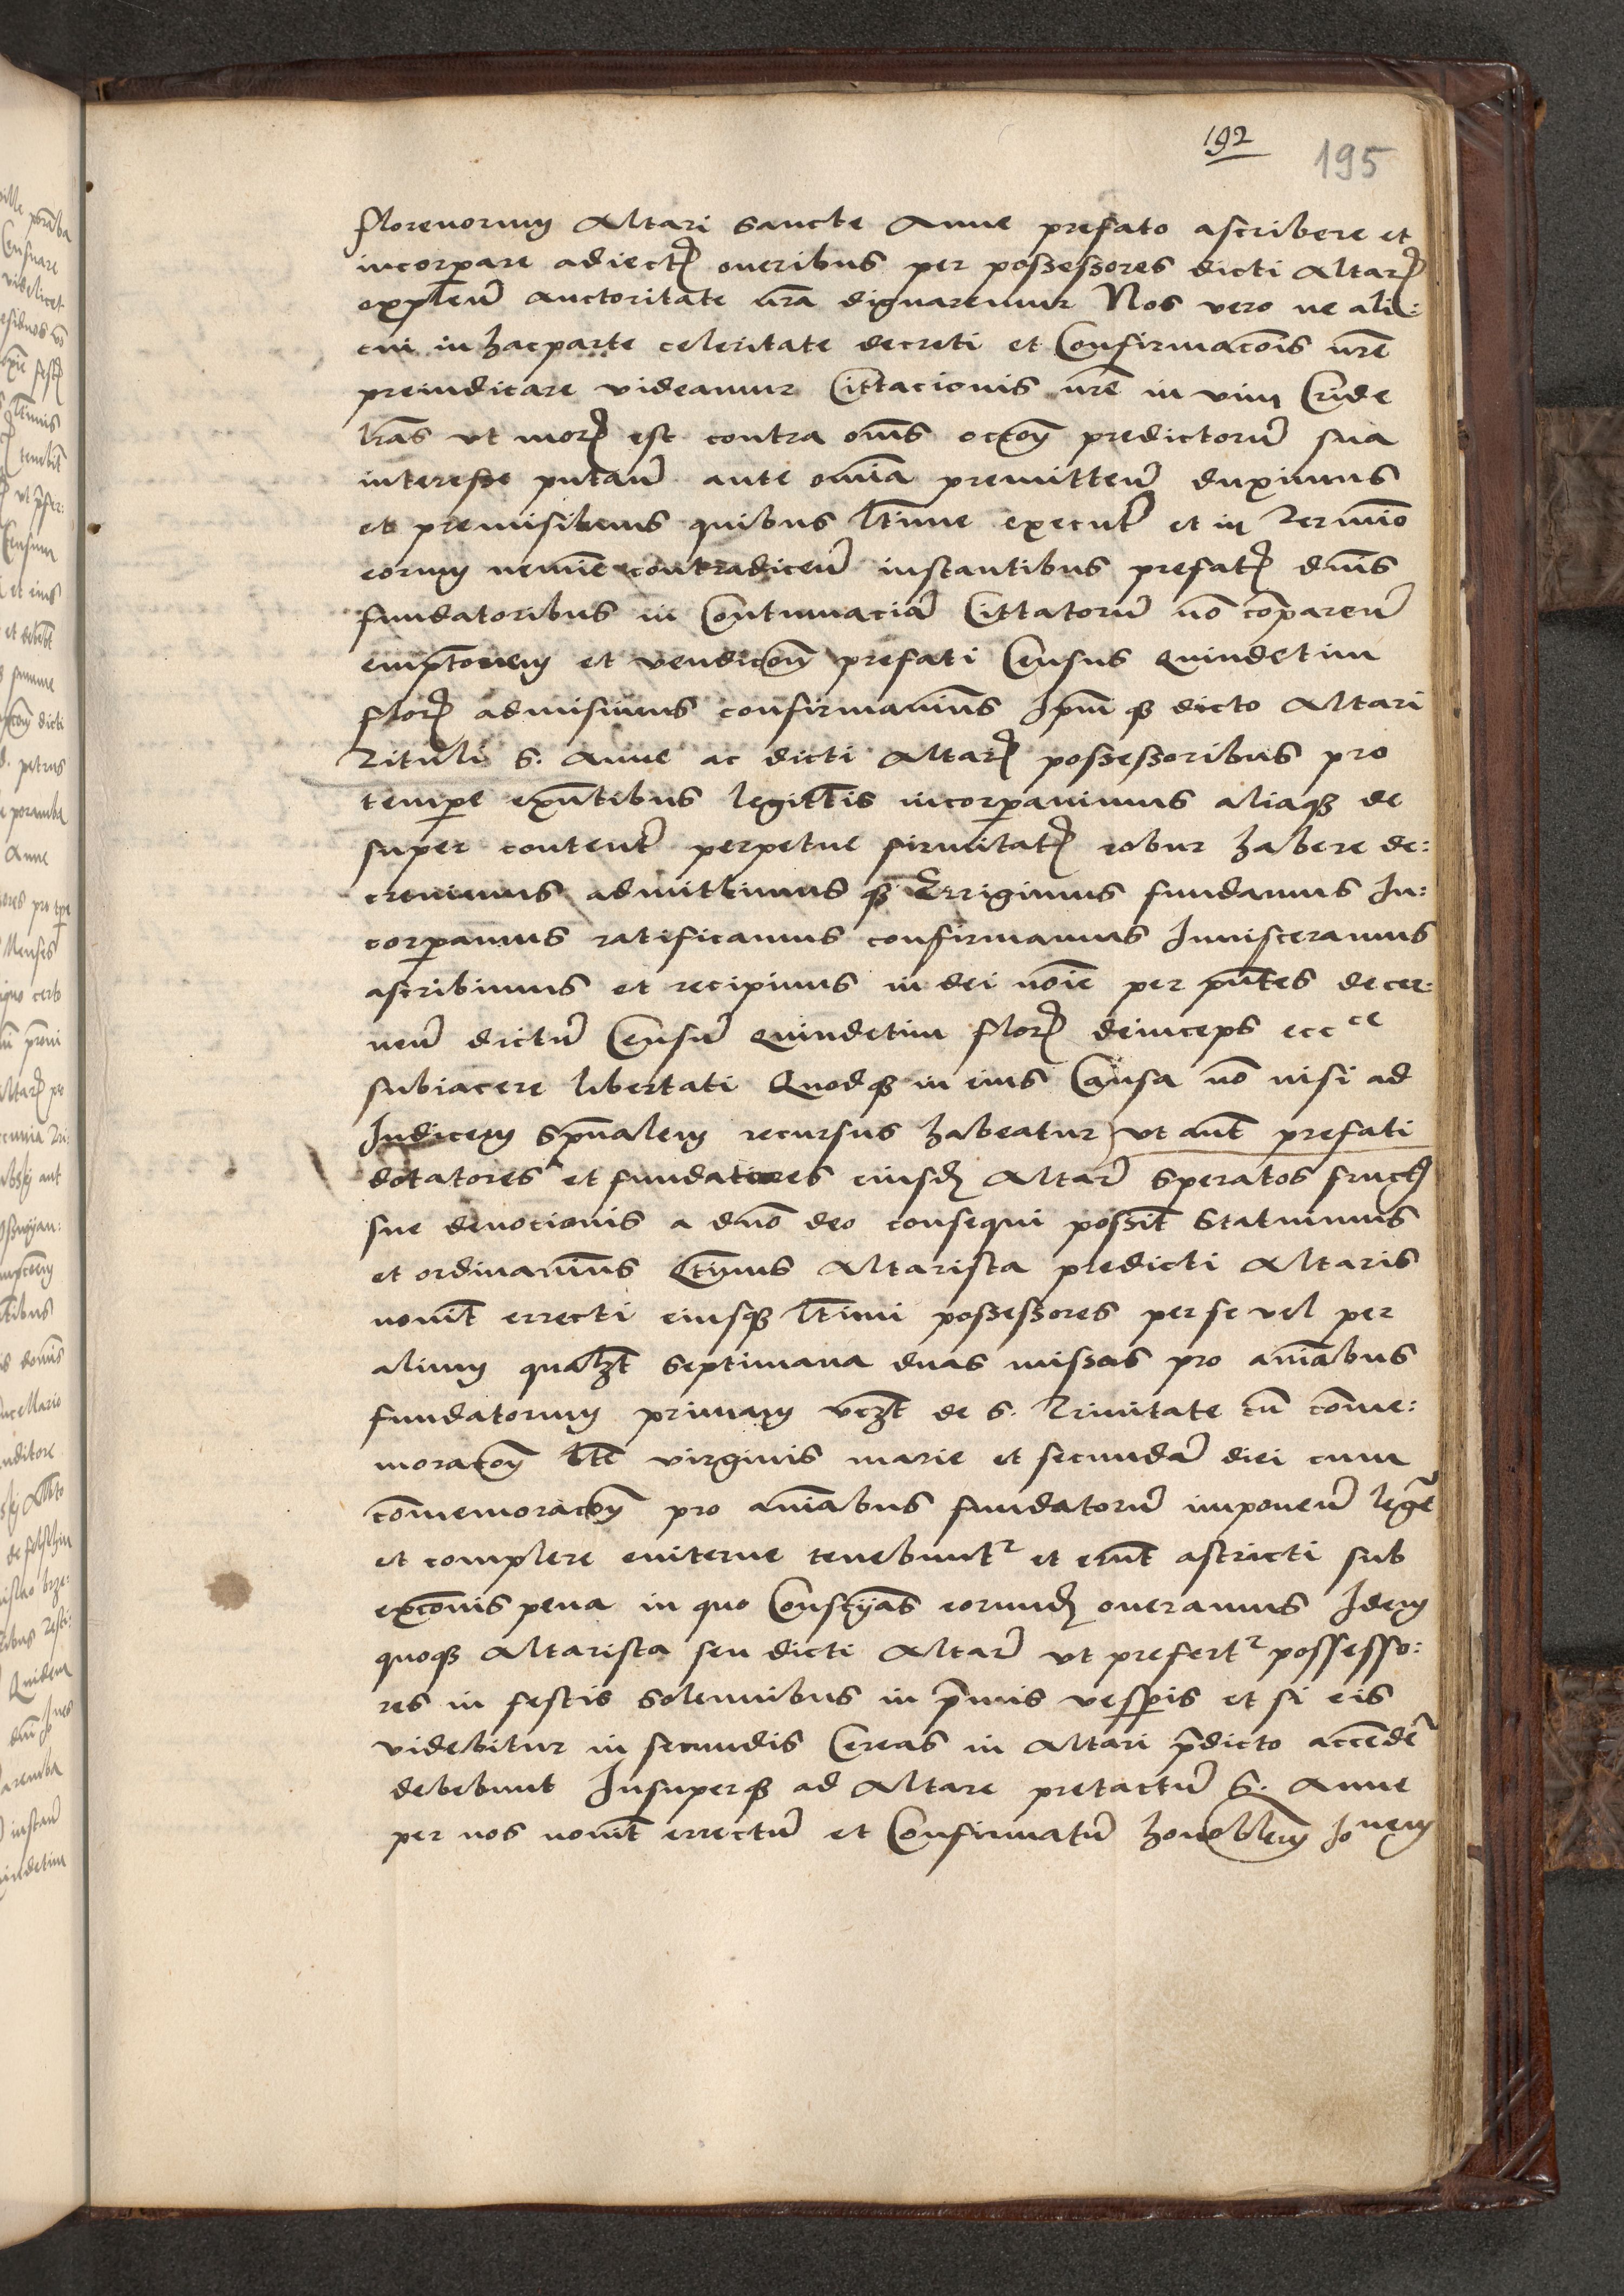 192
195
florenorum Altari sancte Anne prefato ascribere et
incorpare adiect͛ oneribus per possessores dicti Altar͛
explen̄ auctoritate nr̄a dignaremur Nos vero ne ali:
cui in hac parte celeritate decreti et Confirmacōis nr̄e
preiudicare videamur Cittacionis nr̄e in vim Cride
lr̄as ut mor͛ est contra om̄s predictorū sua
interesse putan̄ ante om̄ia premitten̄ duximus
et premisimus quibus ltīme execut͛ et in Termīo
eorum nemīe contradicen̄ instantibus prefat͛ dn̄is
fundatoribus in Contumaciā Cittatorū nō cōparen̄
emptōnem et vendicōn̄ prefati Census Quindecim
flor͛ admisimus confirmavim̄s Ip̄mqȝ dicto Altari
Tituli S. Anne ac dicti Altar͛ possessoribus pro
tempe exn̄tibus legitt̄is incorpavimus aliaqȝ de
super content͛ perpetue firmitat͛ robur habere de:
crevimus admittimusqȝ Errigimus fundamus In:
corpamus ratificamus confirmamus Invisceramus
ascribimus et recipimus in dei noīe per pn̄tes decer:
nen̄ dictū Censū Quindecim flor͛ deinceps ecc^ce
subiacere libertati Quodqȝ in eius Causa nō nisi ad
Iudicem sp̄ualem recursus habeatur ut aut̄ prefati
dotatores et fundatores eiusd͛ Altar͛ speratos fruct͛
sue devocionis a dn̄o deo consequi possīt Statuimus
et ordinavim̄s Altarista predicti Altaris
novit̄ errecti eiusqȝ lt̄imi possessores per se vel per
alium qualȝt septimana duas missas pro aīabus
fundatorum primam vcȝt de S. Trinitate cū cōme:
moracōn̄ bt̄e virginis marie et secundā diei cum
cōmemoracōn̄ pro aīabus fundatorū imponen̄ legē
et complere eviterne tenebunt͛ et erūt astricti sub
excōnis pena in quo Conscīas eorund͛ oneramus Idem
quoqȝ Altarista seu dicti Altar͛ ut prefert͛ possesso:
res in festis solennibus in p̄mis vesp̄is et si eis
videbitur in secundis Cereas in Altari p̄dicto accēdē
debebunt Insuperqȝ ad Altare pretactū S. Anne
per nos novit̄ errectū et Confirmatū honoblem̄ Io^nem